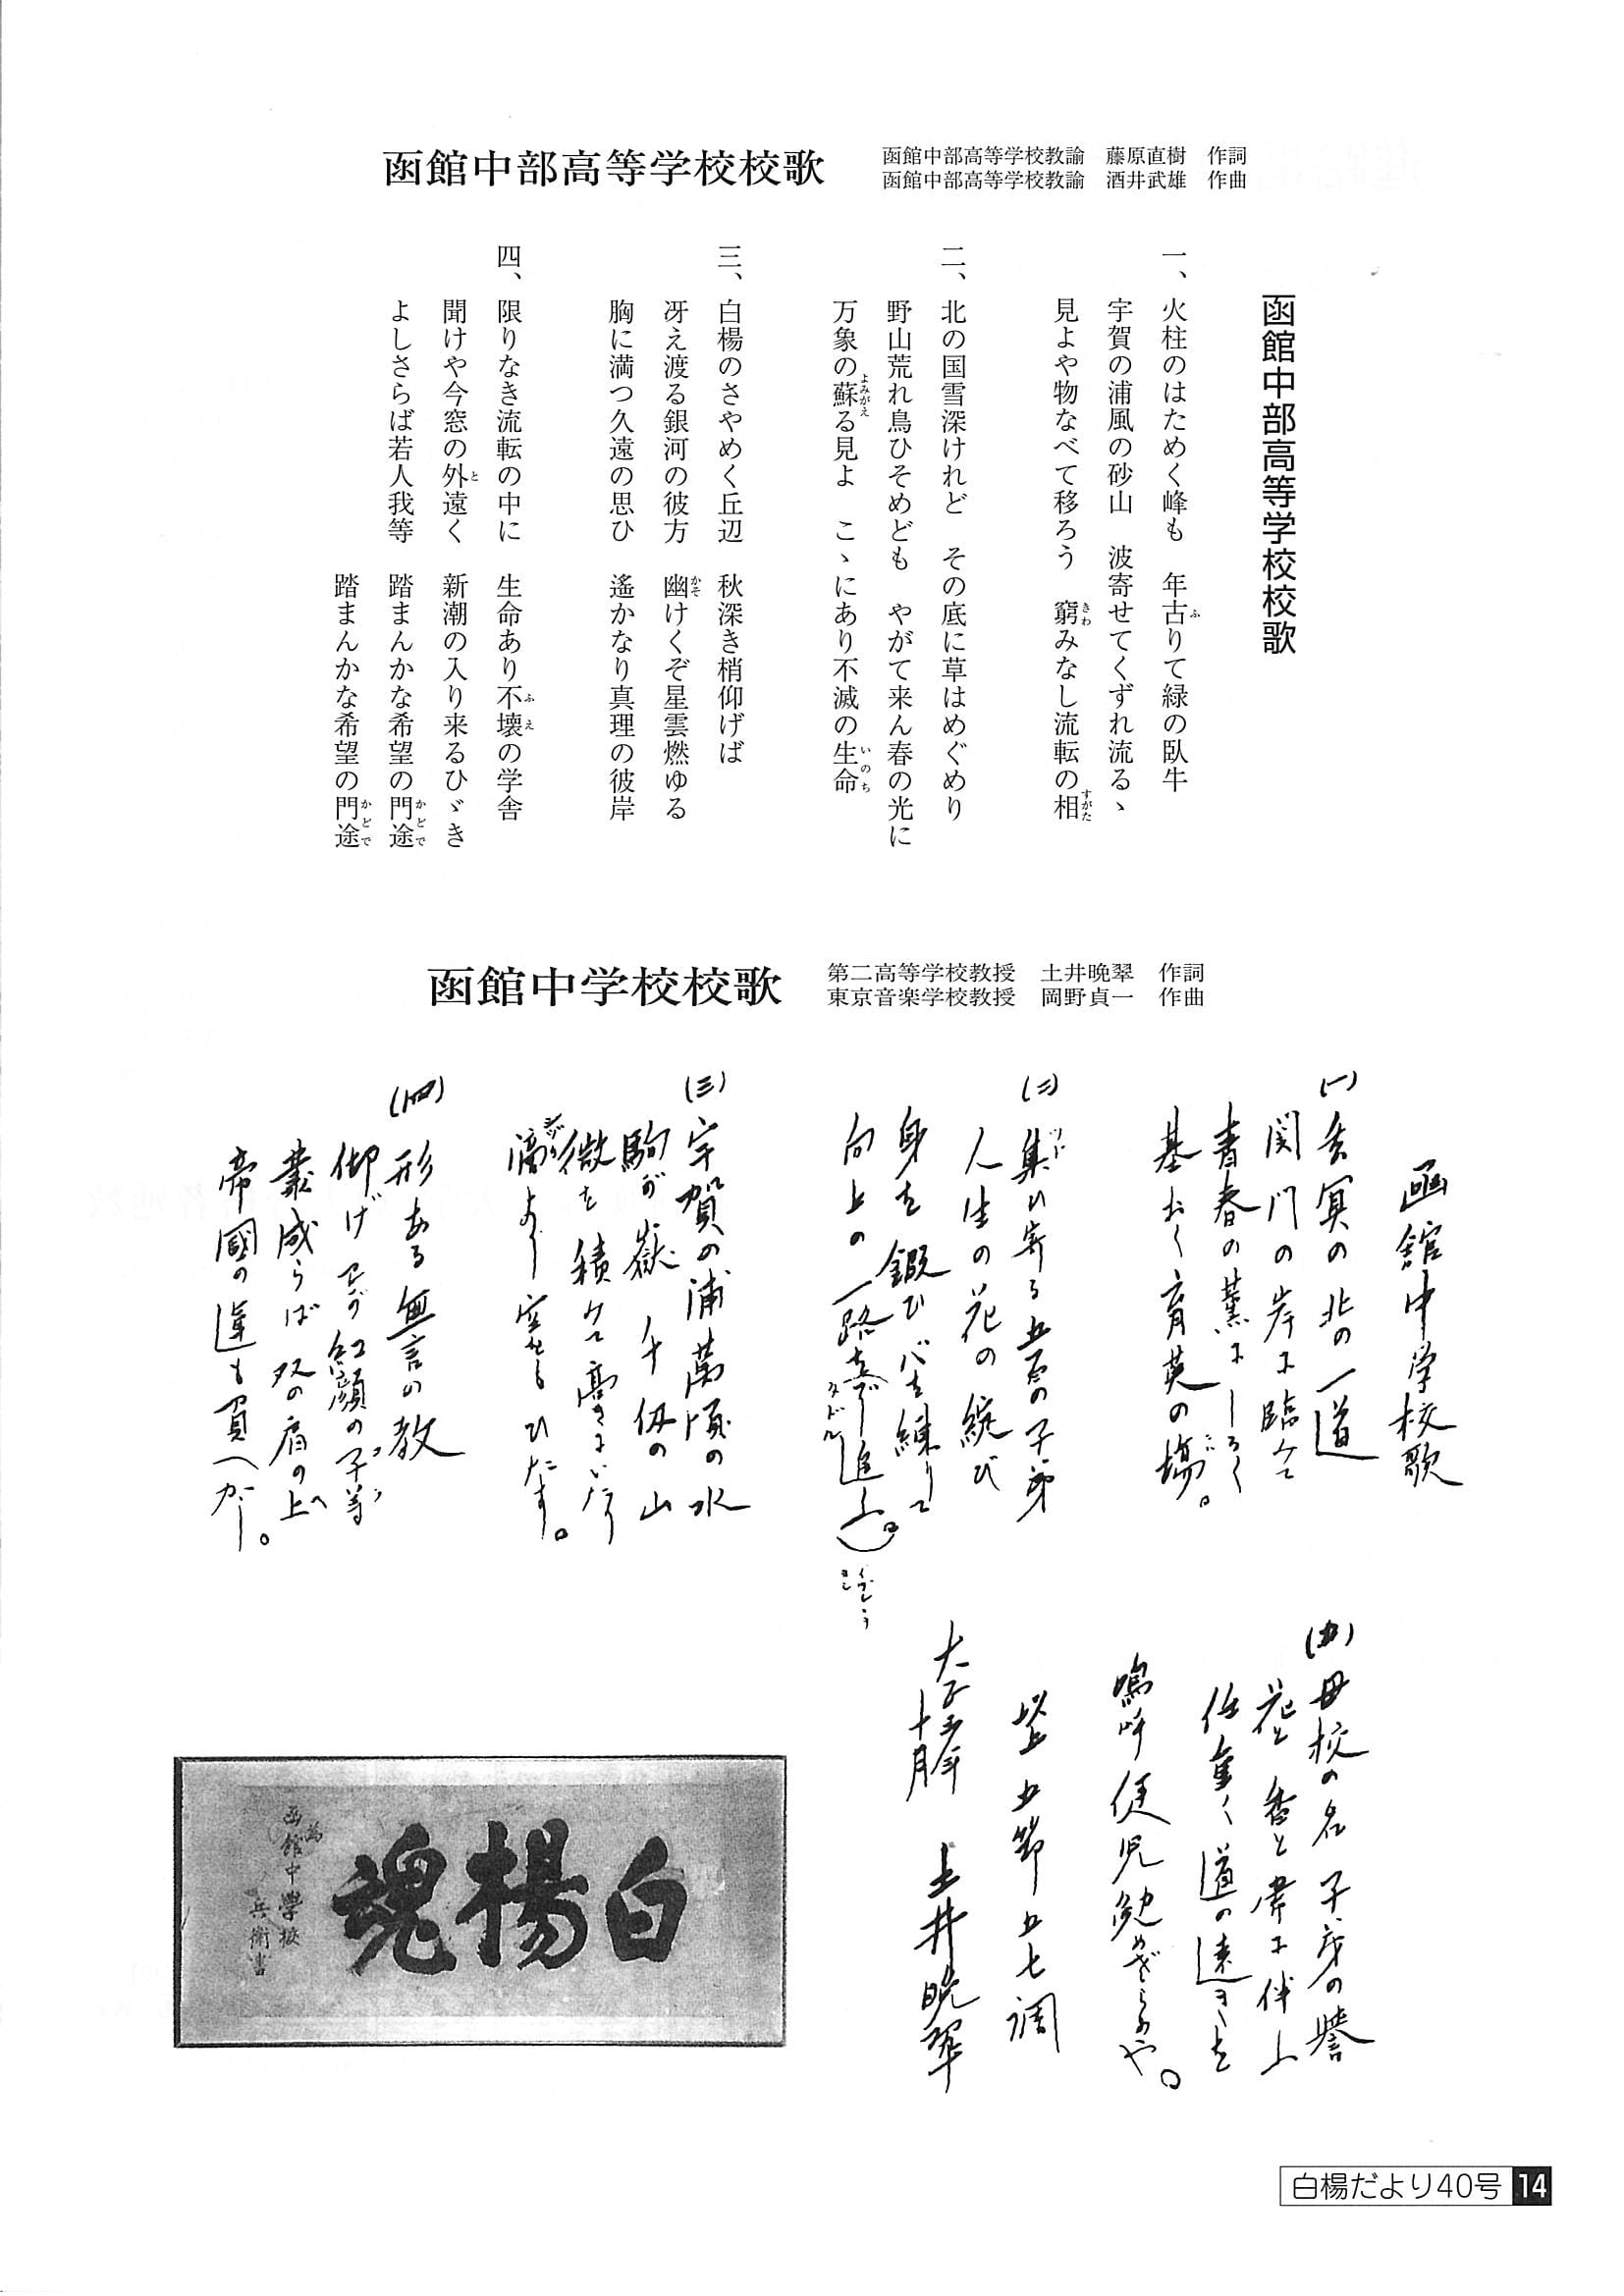 函館中部高等学校校歌
函館中部高等学校教諭　藤原直樹　作詞
函館中部高等学校教諭　酒井武雄　作曲
函館中部高等学校校歌
一、火柱のはためく峰も　年古りて緑の臥牛
宇賀の浦風の砂山　波寄せてくずれ流るゝ
見よや物なべて移ろう　窮みなし流転の相
二、北の国雪深けれど　その底に草はめぐめり
野山荒れ鳥ひそめども　やがて来ん春の光に
万象の蘇る見よ　こゝにあり不滅の生命
三、白楊のさやめく丘辺　秋深き梢仰げば
冴え渡る銀河の彼方　幽けくぞ星雲燃ゆる
胸に満つ久遠の思ひ　遙かなり真理の彼岸
四、限りなき流転の中に　生命あり不壊の学舎
聞けや今窓の外遠く　新潮の入り来るひゞき
よしさらば若人我等　踏まんかな希望の門途
踏まんかな希望の門途
函館中学校校歌
第二高等学校教授　土井晩翠　作詞
東京音楽学校教授　岡野貞一　作曲
函館中学校校歌
(一)　冥の北の一道
関門の岸に臨みて
青春の薫にしるく
基おく育英の場。
(二)集ひ寄る五百の子弟
人生の花の綻び
身を鍛ひ心を練りて
向上の一路を進む。
(三)宇賀の浦萬頃の水
駒が嶽千仭の山
微を積みて高きにいたり
滴より空をもひたす。
(四)形ある無言の教
仰げ　紅顔の子等
業成らば双の肩の上
帝國の運も負ふべし。
(五)母校の名子弟の譽
花と香と常に伴ふ
任重く道の遠きを
嗚呼健児勉めざらめや。
以上五節五七調
十月　土井晩翠
白楊魂
為
函館中學校
兵衛書
白楊だより40号 14